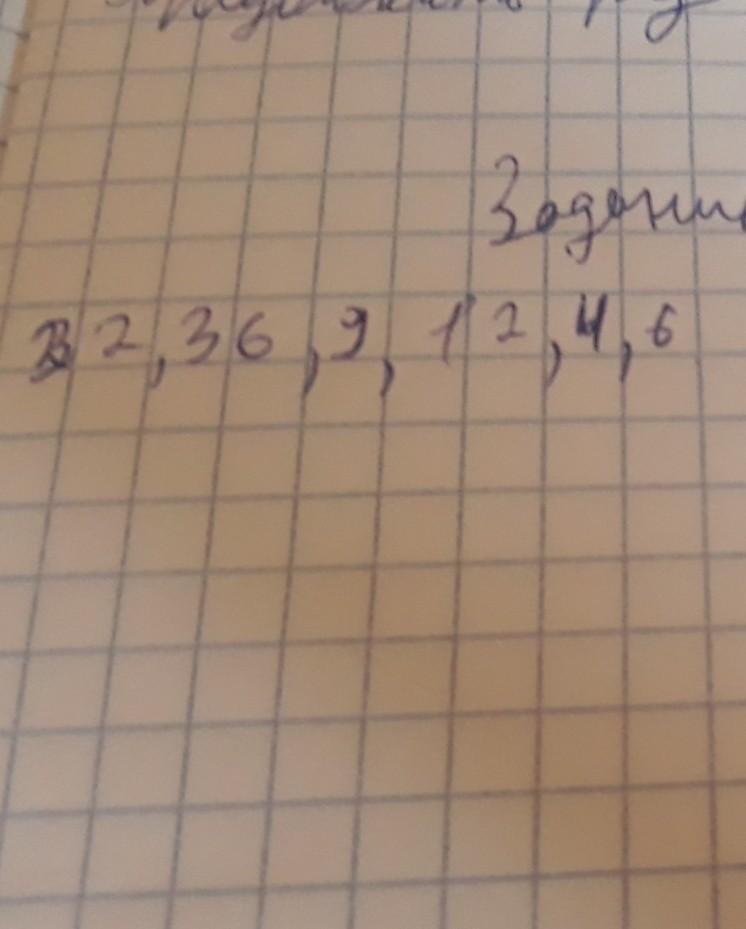 Задани
2, 36, 9, 12, 4, 6